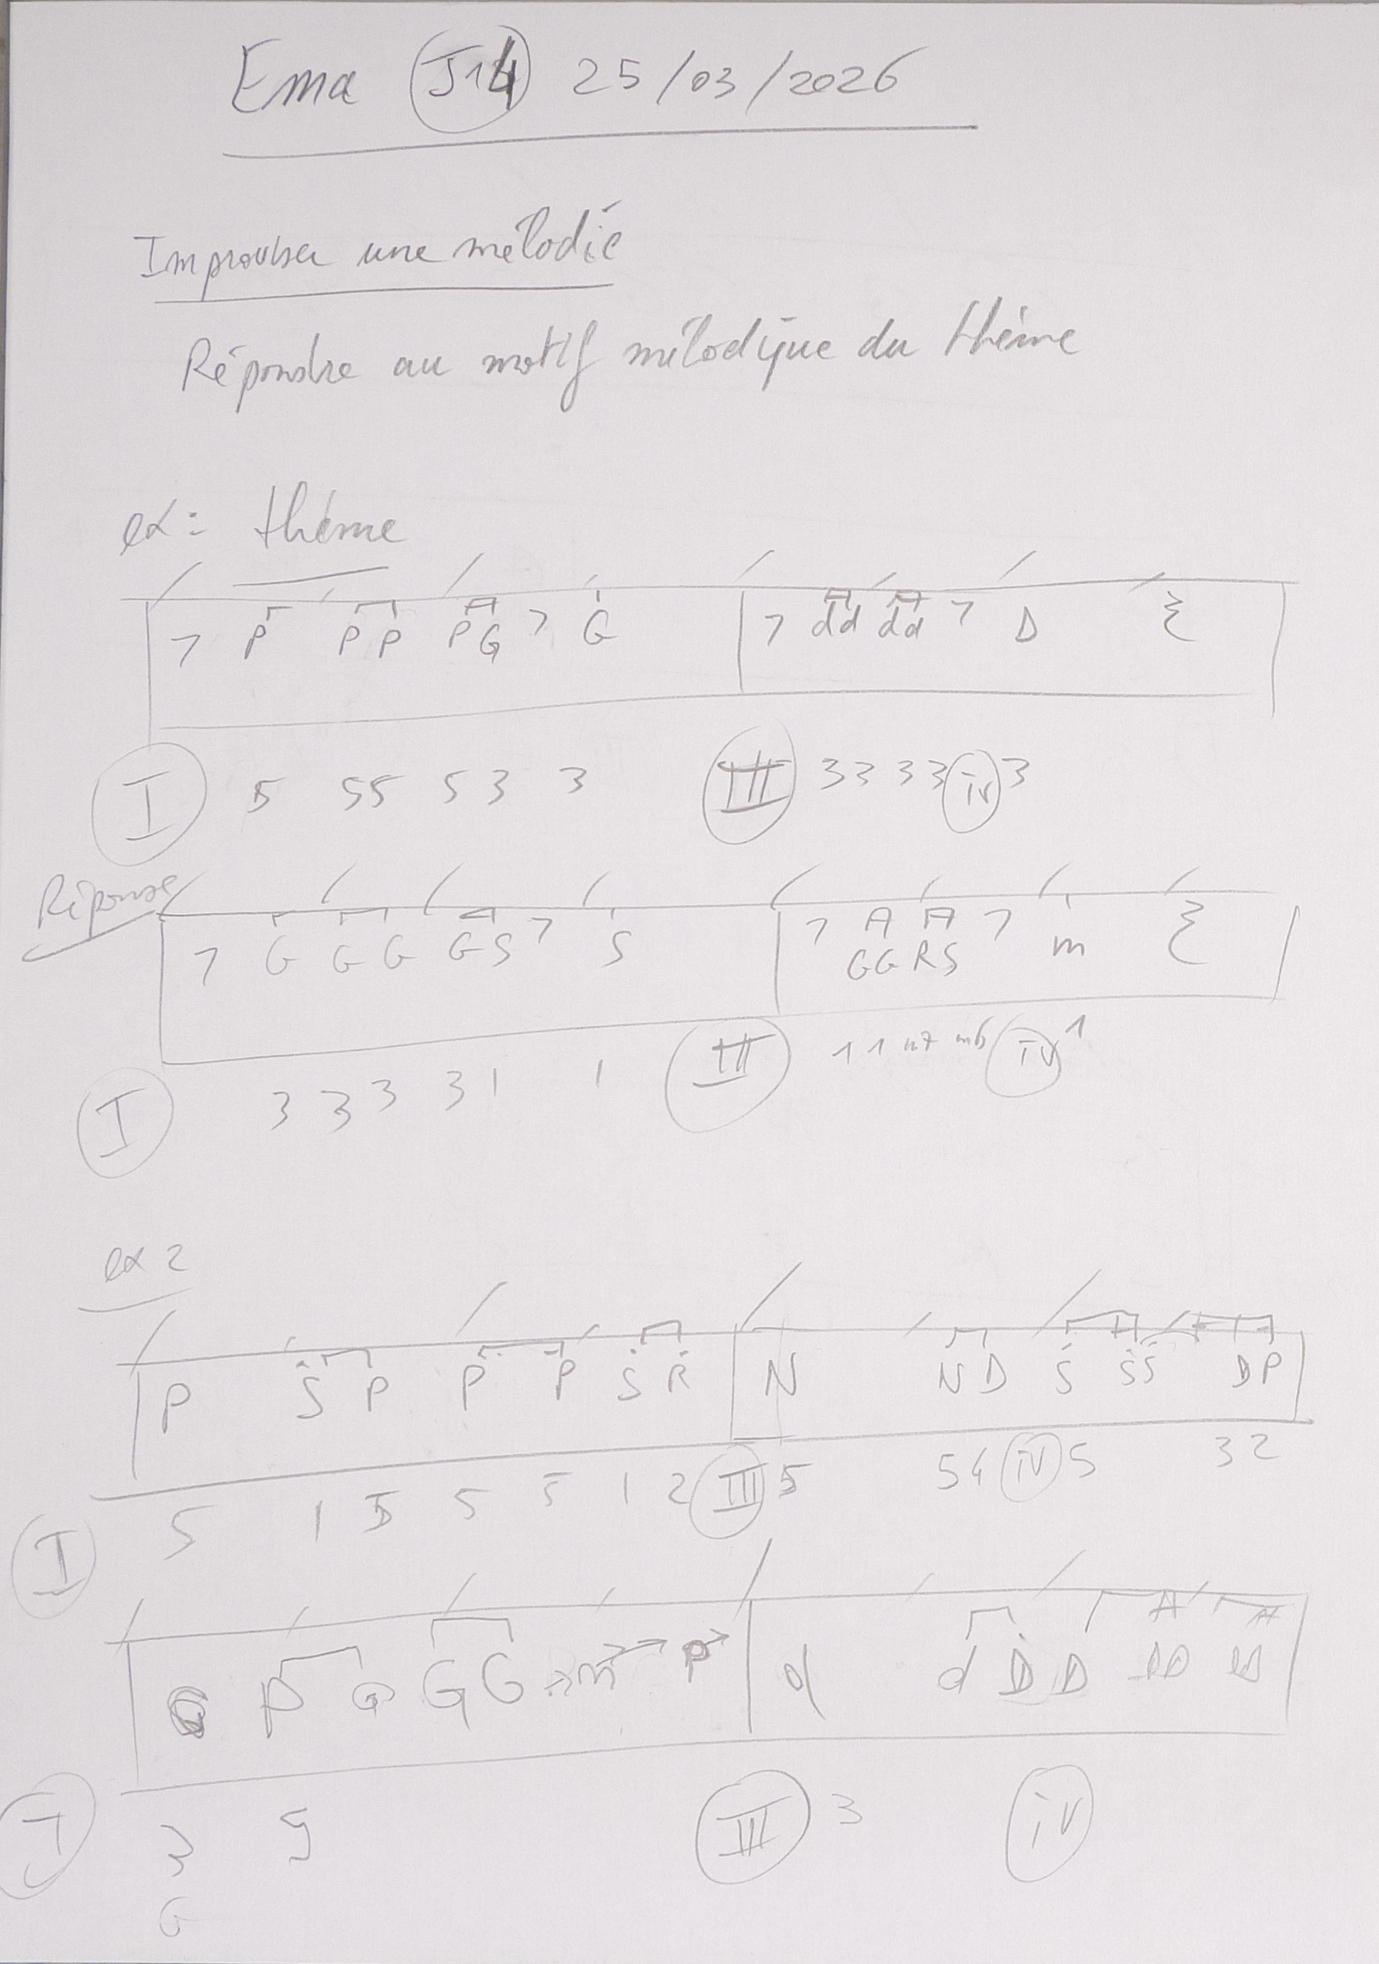 Ema J14 25/03/2026
Improviser une mélodie
Répondre au motif mélodique du thème
ex: thème
7 P P P P G 7 G 7 d d d d 7 D
I 5 5 5 5 3 3 III 3 3 3 3 iv 3
Réponse
7 G G G G S 7 S 7 G G R S 7 m
I 3 3 3 3 1 1 III 1 1 iv 1
ex 2
P S P P P S R N N D S S S D P
I 5 1 5 5 5 1 2 III 5 5 4 iv 5 3 2
G P G G G m P d d D D D D
I 3 5 III 3 iv
G